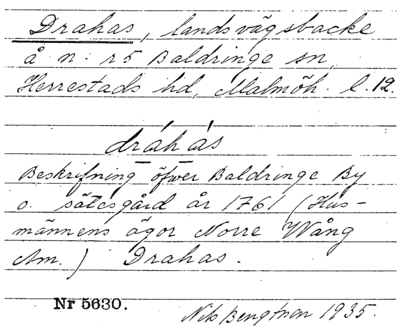 Drahas, landsvägsbacke
å n: r 5 Baldringe sn,
Herrestads hd, Malmöh. l. 12.
dráhàs
Beskrifning öfver Baldringe By
o. sätesgård år 1761 (Hus-
männens ägor Norre Wång
Am.) Drahas.
Nr 5630.
Nils Bengtson 1935.